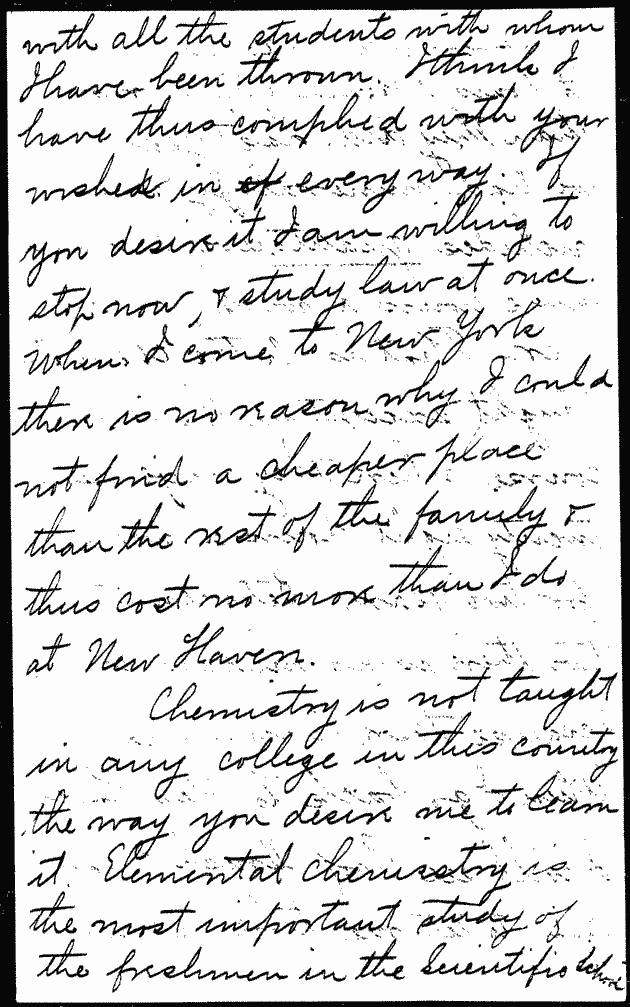 with all the students with whom
I have been thrown. I think I
have thus complied with your
wished in of every way. If
you desire it I am willing to
stop now, & study law at once.
When I come to New York
there is no reason why I could
not find a cheaper place
than the rest of the family &
thus cost no more than I do
at New Haven.
Chemistry is not taught
in any college in this country
the way you desire me to learn
it. Elemental chemisstry is
the most important study of
the freshmen in the Scientific School